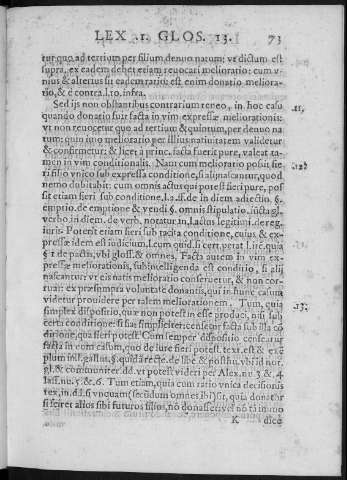 LEX .1. GLOS. 13. 73
tur quo, ad tertium per filium denuo natum: vt dictum est
supra, ex eadem debet etiam reuocari melioratio: cum v-
nius & alterius sit eadem ratio: est enim donatio meliora-
tio, & è contra. l.to. infra.
Sed ijs non obstantibus contrarium teneo, in hoc casu
11,
quando donatio fuit facta in vim expressæ meliorationis:
vt non reuocetur quo ad tertium & quintum, per denuo na
tum: quin imo melioratio per illius natiuitatem validetur
& confirmetur: & licet à princ. facta fuerit pure, valeat ta-
men in vim conditionalis. Nam cum melioratio possit fie-
12.
ri filio vnico sub expressa conditione, si alij nascantur, quod
nemo dubitabit: cum omnis actus qui potest fieri pure, pos
sit etiam fieri sub conditione, l.2. ff. de in diem adiectio. §.
emptio. de emptione & vendi. §. omnis stipulatio. iuncta gl.
verbo in diem. de verb. notatur in l. actus legitimi. de reg.
iuris Potest etiam fieri sub tacita conditione, cuius & ex-
pressæ idem est iudicium. l. cum quid. si cert. petat. l. ire. quia
§ 1 de pactis, vbi gloss. & omnes. Facta autem in vim ex-
pressæ meliorationis, subintelligenda est conditio, si alij
nascantur: vt eis natis melioratio conseruetur, & non cor-
ruat: ex præsumpta voluntate donantis, qui in hunc casum
videtur prouidere per talem meliorationem. Tum, quia
13.
simplex dispositio, quæ non potest in esse produci, nisi sub
certa conditione: si fiat simpliciter: censetur facta sub illa co
ditione, qua fieri potest. Cum semper dispositio censeatur
facta in eum casum, quo de iure fieri potest. text. est & exe
plum in l. gallus, §. quidã recte. de libe. & posthu. vbi id not.
gl. & communiter dd. vt potest videri per Alex. nu. 3. & 4.
Ias. nu. 5. & 6. Tum etiam, quia cum ratio vnica decisionis
tex, in d. l. si vnquam (secundum omnes ibi) sit, quia donator
si sciret alios sibi futuros filios, nõ donasset: vel nõ tã immo
K dice